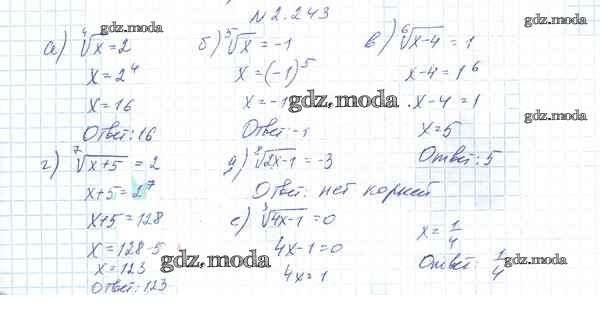 №2.243
а) ⁴√x = 2
x = 2⁴
x = 16
Ответ: 16
б) ⁵√x = -1
x = (-1)⁵
x = -1
Ответ: -1
в) ⁶√x-4 = 1
x-4 = 1⁶
x-4 = 1
x = 5
Ответ: 5
г) ⁷√x+5 = 2
x+5 = 2⁷
x+5 = 128
x = 128-5
x = 123
Ответ: 123
д) ⁸√2x-1 = -3
Ответ: нет корней
е) ³√4x-1 = 0
4x-1 = 0
4x = 1
x = 1/4
Ответ: 1/4
gdz.moda
gdz.moda
gdz.moda
gdz.moda
gdz.moda
gdz.moda
gdz.moda